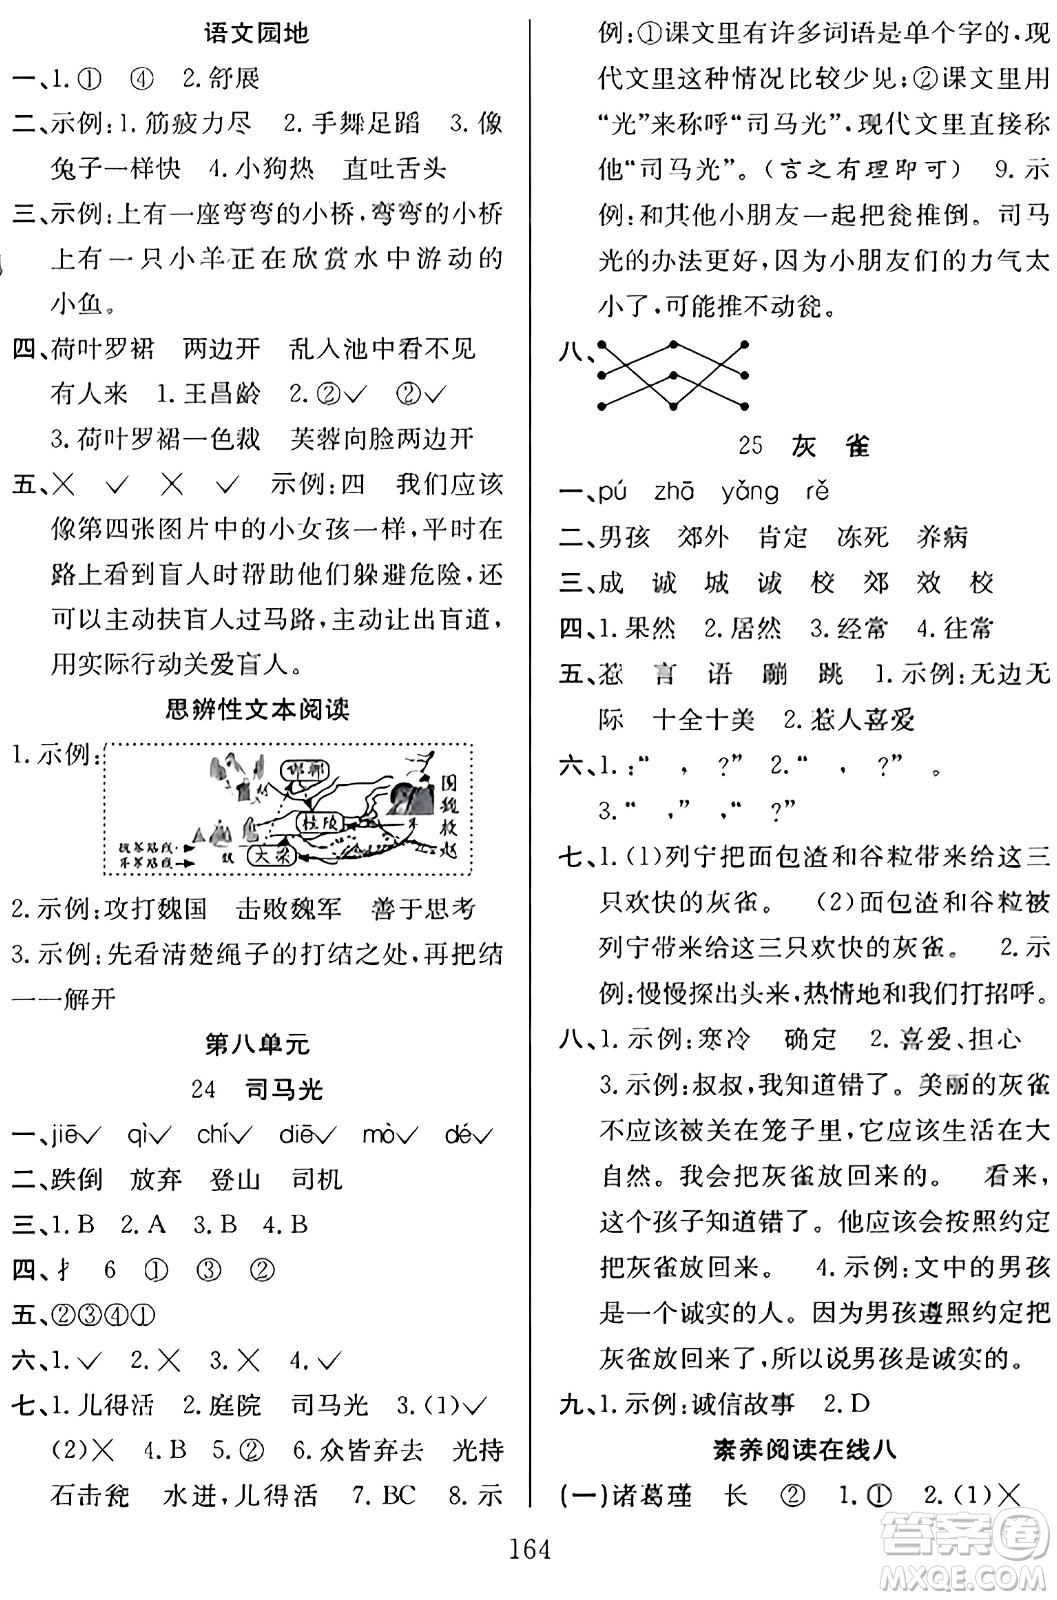 语文园地
一、1.① ④ 2.舒展
二、示例:1.筋疲力尽 2.手舞足蹈 3.像
兔子一样快 4.小狗热 直吐舌头
三、示例:上有一座弯弯的小桥,弯弯的小桥
上有一只小羊正在欣赏水中游动的
小鱼。
四、荷叶罗裙 两边开 乱入池中看不见
有人来 1.王昌龄 2.①✓ ②✓
3.荷叶罗裙一色裁 芙蓉向脸两边开
五、✕ ✓ ✕ ✓ 示例:四 我们应该
像第四张图片中的小女孩一样,平时在
路上看到盲人时帮助他们躲避危险,还
可以主动扶盲人过马路,主动让出盲道,
用实际行动关爱盲人。
思辨性文本阅读
1.示例:
邯郸
桂陵
大梁
围魏救赵
2.示例:攻打魏国 击败魏军 善于思考
3.示例:先看清楚绳子的打结之处,再把结
一一解开
第八单元
24 司马光
一、jiē✓ qì✓ chí✓ diē✓ mò✓ dé✓
二、跌倒 放弃 登山 司机
三、1.B 2.A 3.B 4.B
四、扌 6 ① ③ ②
五、②③④①
六、1.✓ 2.✕ 3.✕ 4.✓
七、1.儿得活 2.庭院 司马光 3.(1)✓
(2)✕ 4.B 5.② 6.众皆弃去 光持
石击瓮 水迸,儿得活 7.BC 8.示
例:①课文里有许多词语是单个字的,现
代文里这种情况比较少见;②课文里用
“光”来称呼“司马光”,现代文里直接称
他“司马光”。(言之有理即可) 9.示
例:和其他小朋友一起把瓮推倒。司马
光的办法更好,因为小朋友们的力气太
小了,可能推不动瓮。
八、
25 灰 雀
一、pú zhā yǎng rě
二、男孩 郊外 肯定 冻死 养病
三、成 诚 城 诚 校 郊 效 校
四、1.果然 2.居然 3.经常 4.往常
五、惹 言 语 蹦 跳 1.示例:无边无
际 十全十美 2.惹人喜爱
六、1.:“ , ?” 2.“ , ?” 。
3.“ ,” ,“ ?”
七、1.(1)列宁把面包渣和谷粒带来给这三
只欢快的灰雀。 (2)面包渣和谷粒被
列宁带来给这三只欢快的灰雀。 2.示
例:慢慢探出头来,热情地和我们打招呼。
八、1.示例:寒冷 确定 2.喜爱、担心
3.示例:叔叔,我知道错了。美丽的灰雀
不应该被关在笼子里,它应该生活在大
自然。我会把灰雀放回来的。 看来,
这个孩子知道错了。他应该会按照约定
把灰雀放回来。 4.示例:文中的男孩
是一个诚实的人。因为男孩遵照约定把
灰雀放回来了,所以说男孩是诚实的。
九、1.示例:诚信故事 2.D
素养阅读在线八
(一)诸葛瑾 长 ② 1.① 2.(1)✕
164
答案圈
MXQE.COM